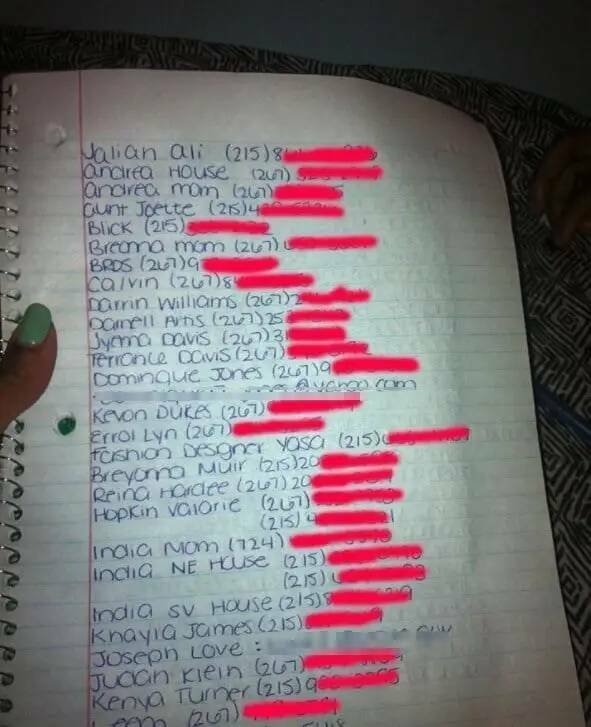 Jalian Ali (215)8
Andrea House (267)
Andrea mom (267)
Aunt Joette (215)4
Blick (215)
Breonna mom (267)
BROS (267)9
Calvin (267)8
Darrin Williams (267)2
Darnell Artis (267)25
Jyenna Davis (267)31
Terrance Davis (267)
Dominque Jones (267)9
@yahoo.com
Kevon DUKES (267)
Errol Lyn (267)
Fashion Designer Yasa (215)
Breyonna Muir (215)20
Reina Hardee (267)20
Hopkin Valarie (267)
(215)4
India Mom (724)
India NE House (215)
(215)
India SV House (215)8
Khayla James (215)
Joseph Love :
Judan Klein (267)
Kenya Turner (215)9
(267)